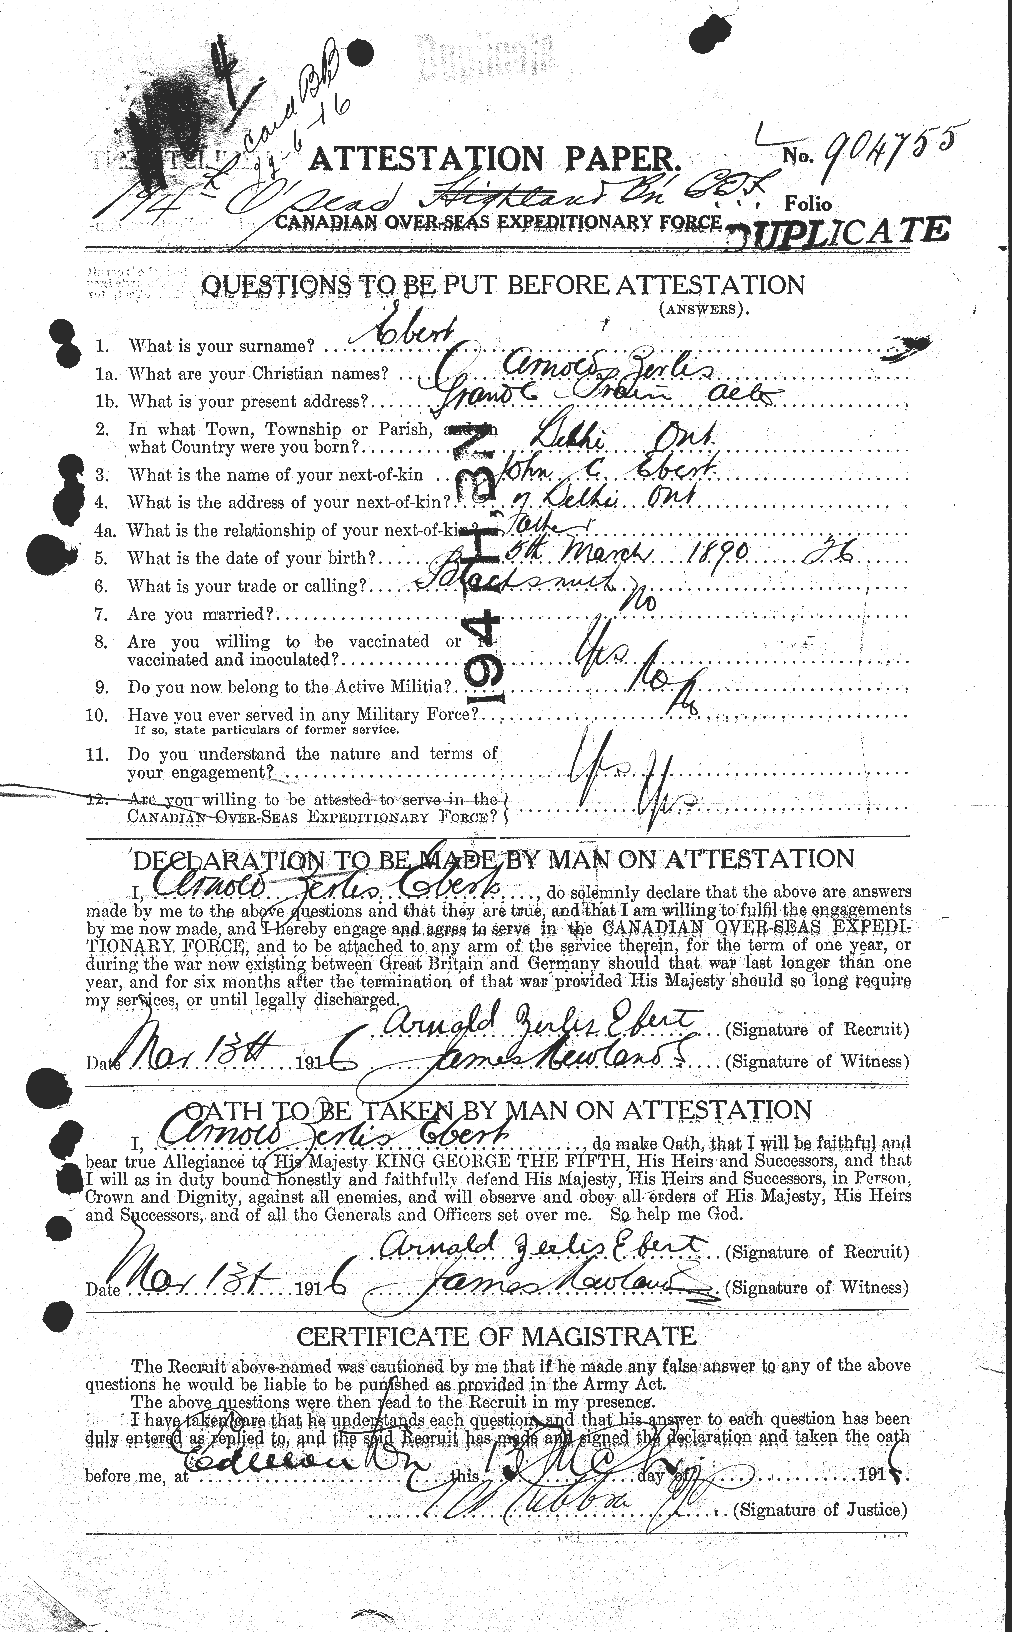 Duplicate
4
Card BB
22-6-16
ATTESTATION PAPER.
No. 904755
194th O'Seas Highland Bn CEF
Folio
CANADIAN OVER-SEAS EXPEDITIONARY FORCE
DUPLICATE
QUESTIONS TO BE PUT BEFORE ATTESTATION
(ANSWERS).
1. What is your surname? Ebert
1a. What are your Christian names? Arnold Zerlis
1b. What is your present address? Grande Prairie Alta
2. In what Town, Township or Parish, and in
what Country were you born? Delhi Ont.
3. What is the name of your next-of-kin John C. Ebert
4. What is the address of your next-of-kin? of Delhi Ont
4a. What is the relationship of your next-of-kin? Father
5. What is the date of your birth? 5th March 1890 26
6. What is your trade or calling? Blacksmith
7. Are you married? No
8. Are you willing to be vaccinated or re-
vaccinated and inoculated? Yes
9. Do you now belong to the Active Militia? No
10. Have you ever served in any Military Force? No
If so, state particulars of former service.
11. Do you understand the nature and terms of
your engagement? Yes
12. Are you willing to be attested to serve in the
CANADIAN OVER-SEAS EXPEDITIONARY FORCE? Yes
194TH, BN
DECLARATION TO BE MADE BY MAN ON ATTESTATION
I, Arnold Zerlis Ebert, do solemnly declare that the above are answers
made by me to the above questions and that they are true, and that I am willing to fulfil the engagements
by me now made, and I hereby engage and agree to serve in the CANADIAN OVER-SEAS EXPEDI-
TIONARY FORCE, and to be attached to any arm of the service therein, for the term of one year, or
during the war now existing between Great Britain and Germany should that war last longer than one
year, and for six months after the termination of that war provided His Majesty should so long require
my services, or until legally discharged.
Arnald Zerlis Ebert (Signature of Recruit)
Date Mar 13th 1916 James Newlands (Signature of Witness)
OATH TO BE TAKEN BY MAN ON ATTESTATION
I, Arnold Zerlis Ebert, do make Oath, that I will be faithful and
bear true Allegiance to His Majesty KING GEORGE THE FIFTH, His Heirs and Successors, and that
I will as in duty bound honestly and faithfully defend His Majesty, His Heirs and Successors, in Person,
Crown and Dignity, against all enemies, and will observe and obey all orders of His Majesty, His Heirs
and Successors, and of all the Generals and Officers set over me. So help me God.
Arnald Zerlis Ebert (Signature of Recruit)
Date Mar 13th 1916 James Newlands (Signature of Witness)
CERTIFICATE OF MAGISTRATE
The Recruit above-named was cautioned by me that if he made any false answer to any of the above
questions he would be liable to be punished as provided in the Army Act.
The above questions were then read to the Recruit in my presence.
I have taken care that he understands each question, and that his answer to each question has been
duly entered as replied to, and the said Recruit has made and signed the declaration and taken the oath
before me, at Edmonton this 13 Mch day of 1916.
(Signature of Justice)